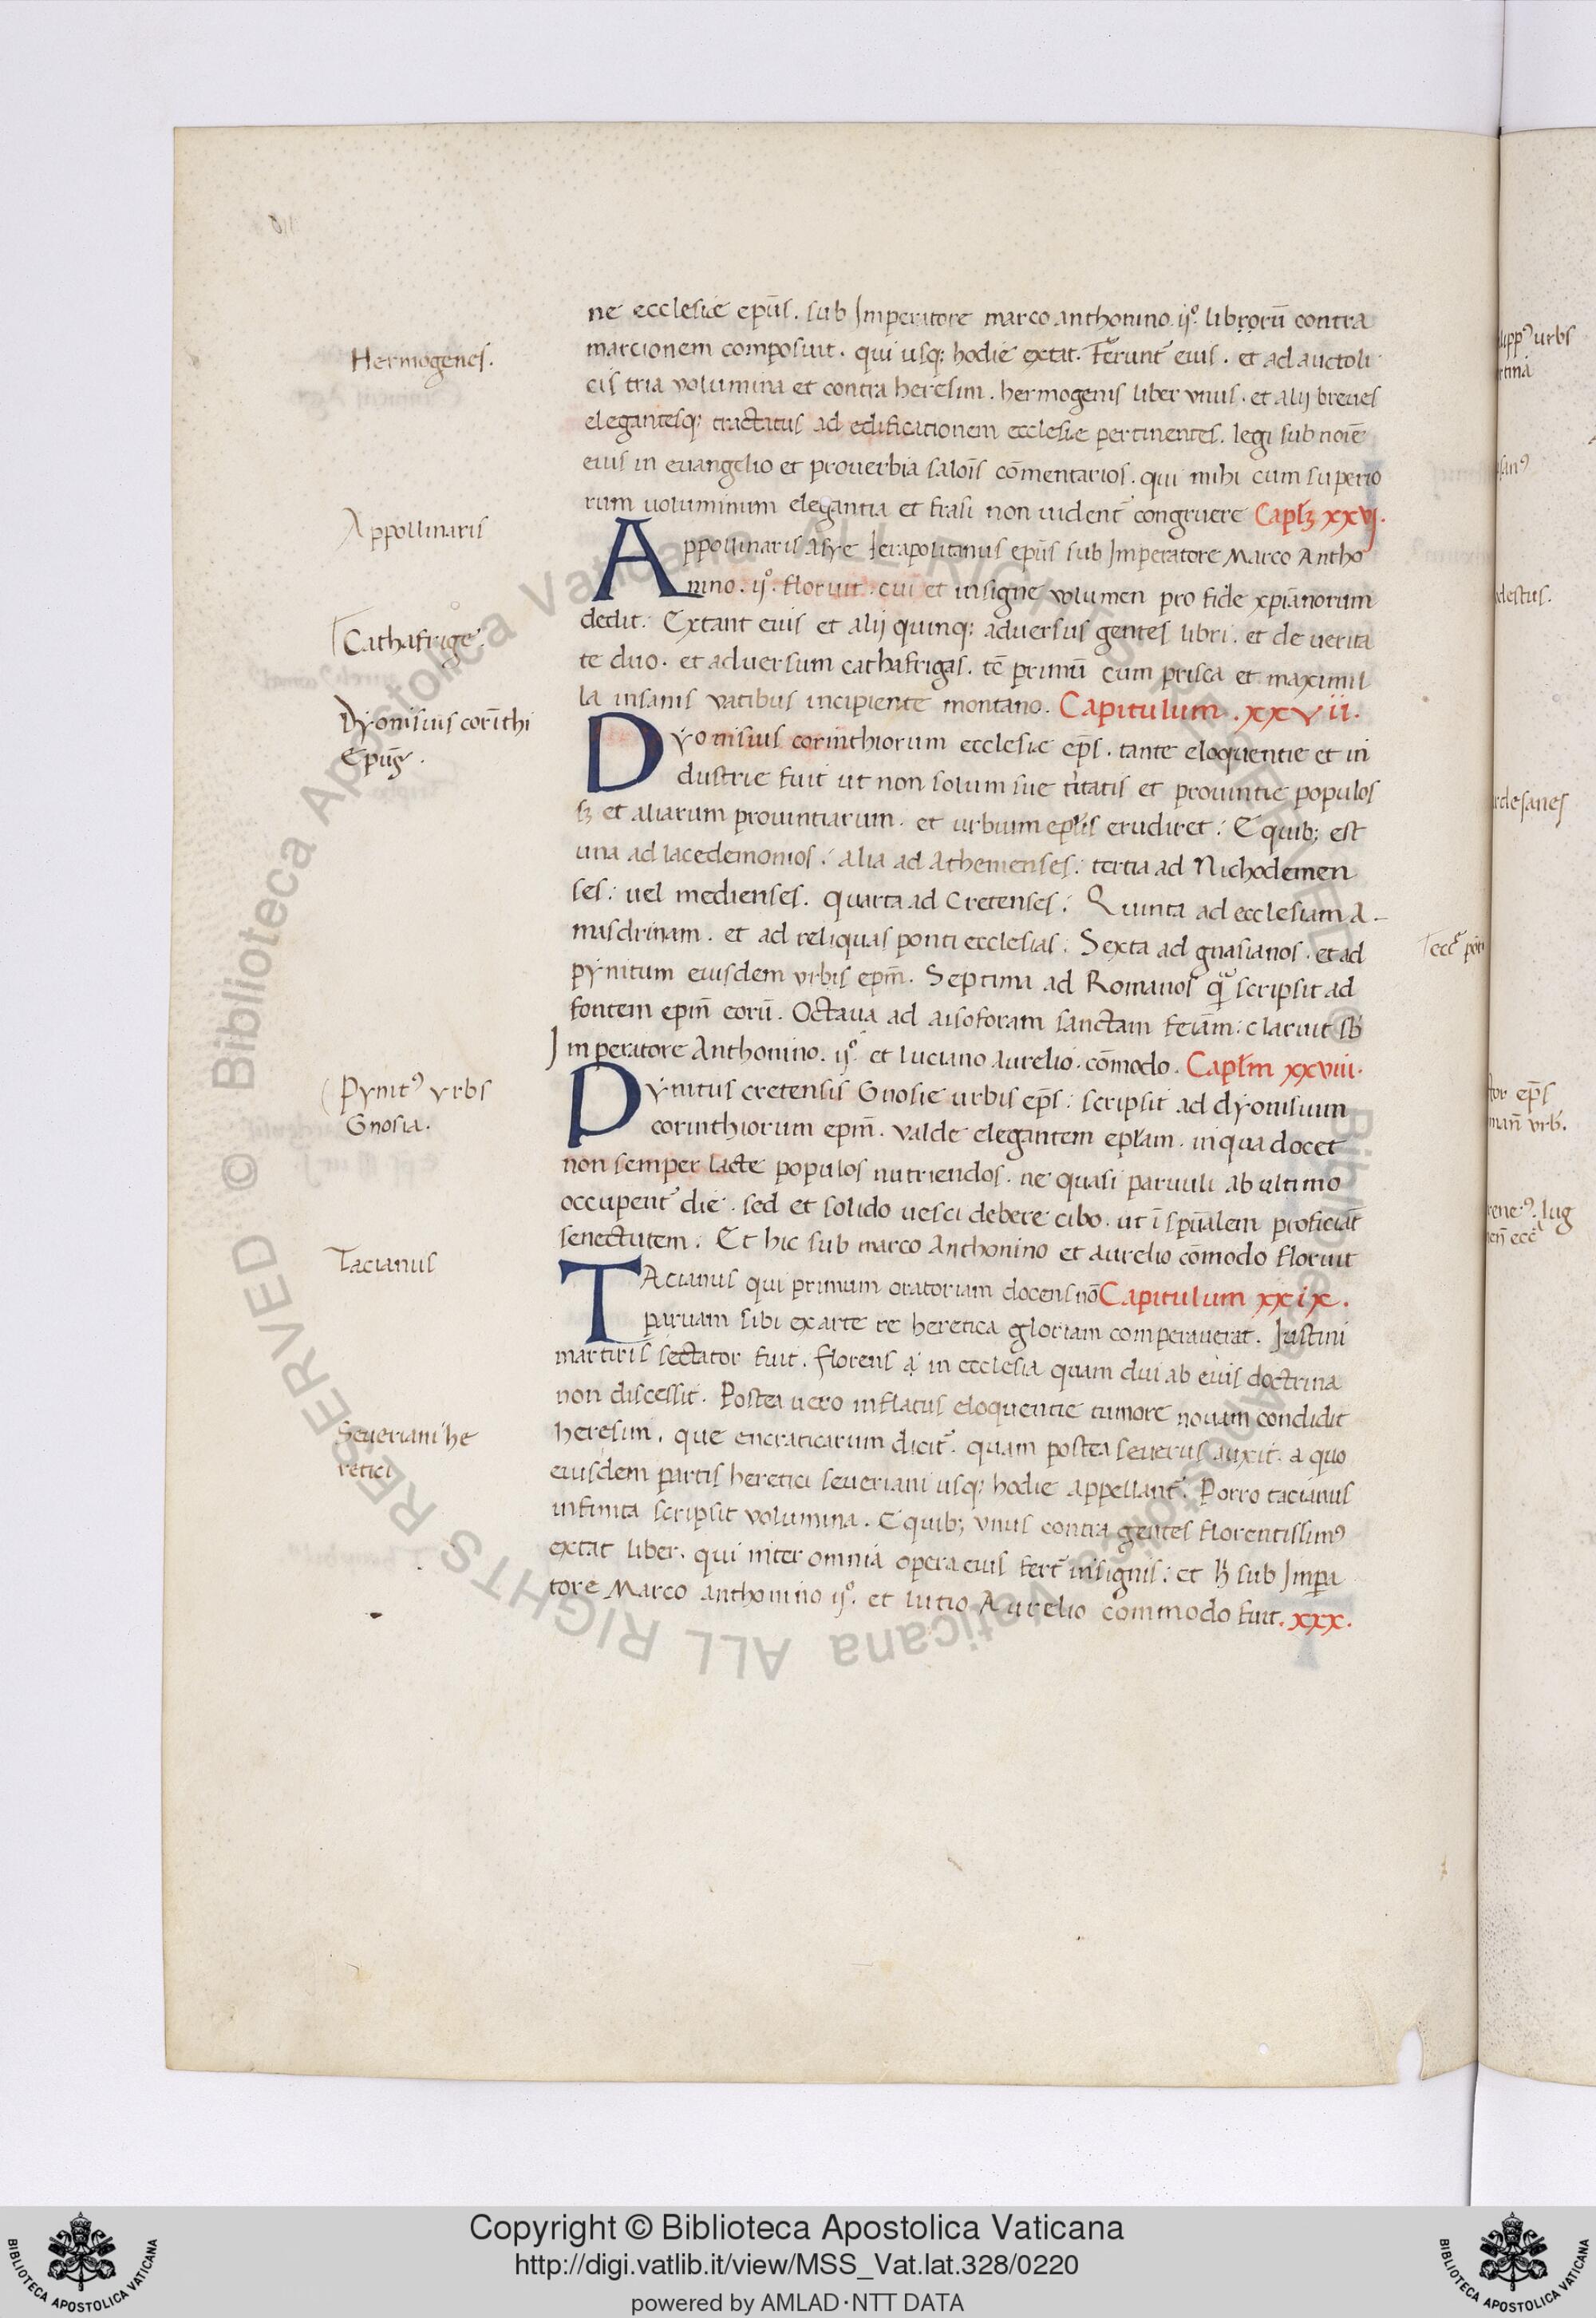 ne ecclesiæ epūs. sub Imperatore marco anthonino. ijº. librorū contra
marcionem composuit. qui usq; hodie extat. Ferunt᷑ eius. et ad auctoli
cis tria volumina et contra heresim. hermogenis liber vnus. et alij breues
elegantesq; tractatus ad edificationem ecclesie pertinentes. legi sub noīe
eius in euangelio et prouerbia saloīs cōmentarios. qui mihi cum superio
rum uoluminum elegantia et frasi non uident᷑ congruere Capl'ʒ xxvj.
Appollinaris Asye Ierapolitanus epūs sub Imperatore Marco Antho
nino. ijº. floruit. cui et insigne volumen pro fide xp̄ianorum
dedit. Extant eius et alij quinq; aduersus gentes libri. et de uerita
te duo. et aduersum cathafrigas. tc̄ primū cum prisca et maximil
la insanis vatibus incipiente montano. Capitulum. xxvii.
Dyonisius corinthiorum ecclesie ep̄s. tante eloquentie et in
dustrie fuit ut non solum sue citatis et prouintie populos
sʒ et aliarum prouintiarum. et urbium epl'is erudiret: E quib; est
una ad lacedemonios: alia ad Athenienses: tertia ad Nichodemen
ses: uel medienses. quarta ad Cretenses: Quinta ad ecclesiam A-
masdrinam. et ad reliquas ponti ecclesias: Sexta ad gnasianos. et ad
pynitum eiusdem vrbis epm̄. Septima ad Romanos qᷓ scripsit ad
fontem epm̄ eorū. Octaua ad aisoforam sanctam feīam: claruit sƀ
Imperatore Anthonino. ijº. et luciano Aurelio. cōmodo. Capl'm xxviii.
Pynitus cretensis Gnosie urbis ep̄s: scripsit ad dyonisium
corinthiorum epm̄. valde elegantem epl'am. in qua docet
non semper lacte populos nutriendos. ne quasi paruuli ab ultimo
occupent᷑ die. sed et solido uesci debere cibo. ut ī spūalem proficiāt
senectutem: Et hic sub marco Anthonino et aurelio cōmodo floruit
TAcianus qui primum oratoriam docens nō Capitulum xxix.
paruam sibi ex arte re heretica gloriam comperauerat. Iustini
martiris sectator fuit. florens in ecclesia quam diu ab eius doctrina
non discessit. Postea uero inflatus eloquentie tumore nouam condidit
heresim. que encraticarum dicit᷑. quam postea seuerus auxit. a quo
eiusdem partis heretici seueriani usq; hodie appellant᷑. Porro tacianus
infinita scripsit volumina. E quib; vnus contra gentes florentissimꝰ
extat liber. qui inter omnia opera eius fert᷑ insignis: et h̄ sub Impera
tore Marco anthonino ijº. et lutio Aurelio commodo fuit. xxx.
Hermogenes.
Appollinaris
Cathafrige.
Dyonisius corīthi
Epūs.
Pynitꝰ vrbs
Gnosia.
Tacianus
Seueriani he
retici
Copyright © Biblioteca Apostolica Vaticana
http://digi.vatlib.it/view/MSS_Vat.lat.328/0220
powered by AMLAD·NTT DATA
BIBLIOTECA APOSTOLICA VATICANA
BIBLIOTECA APOSTOLICA VATICANA